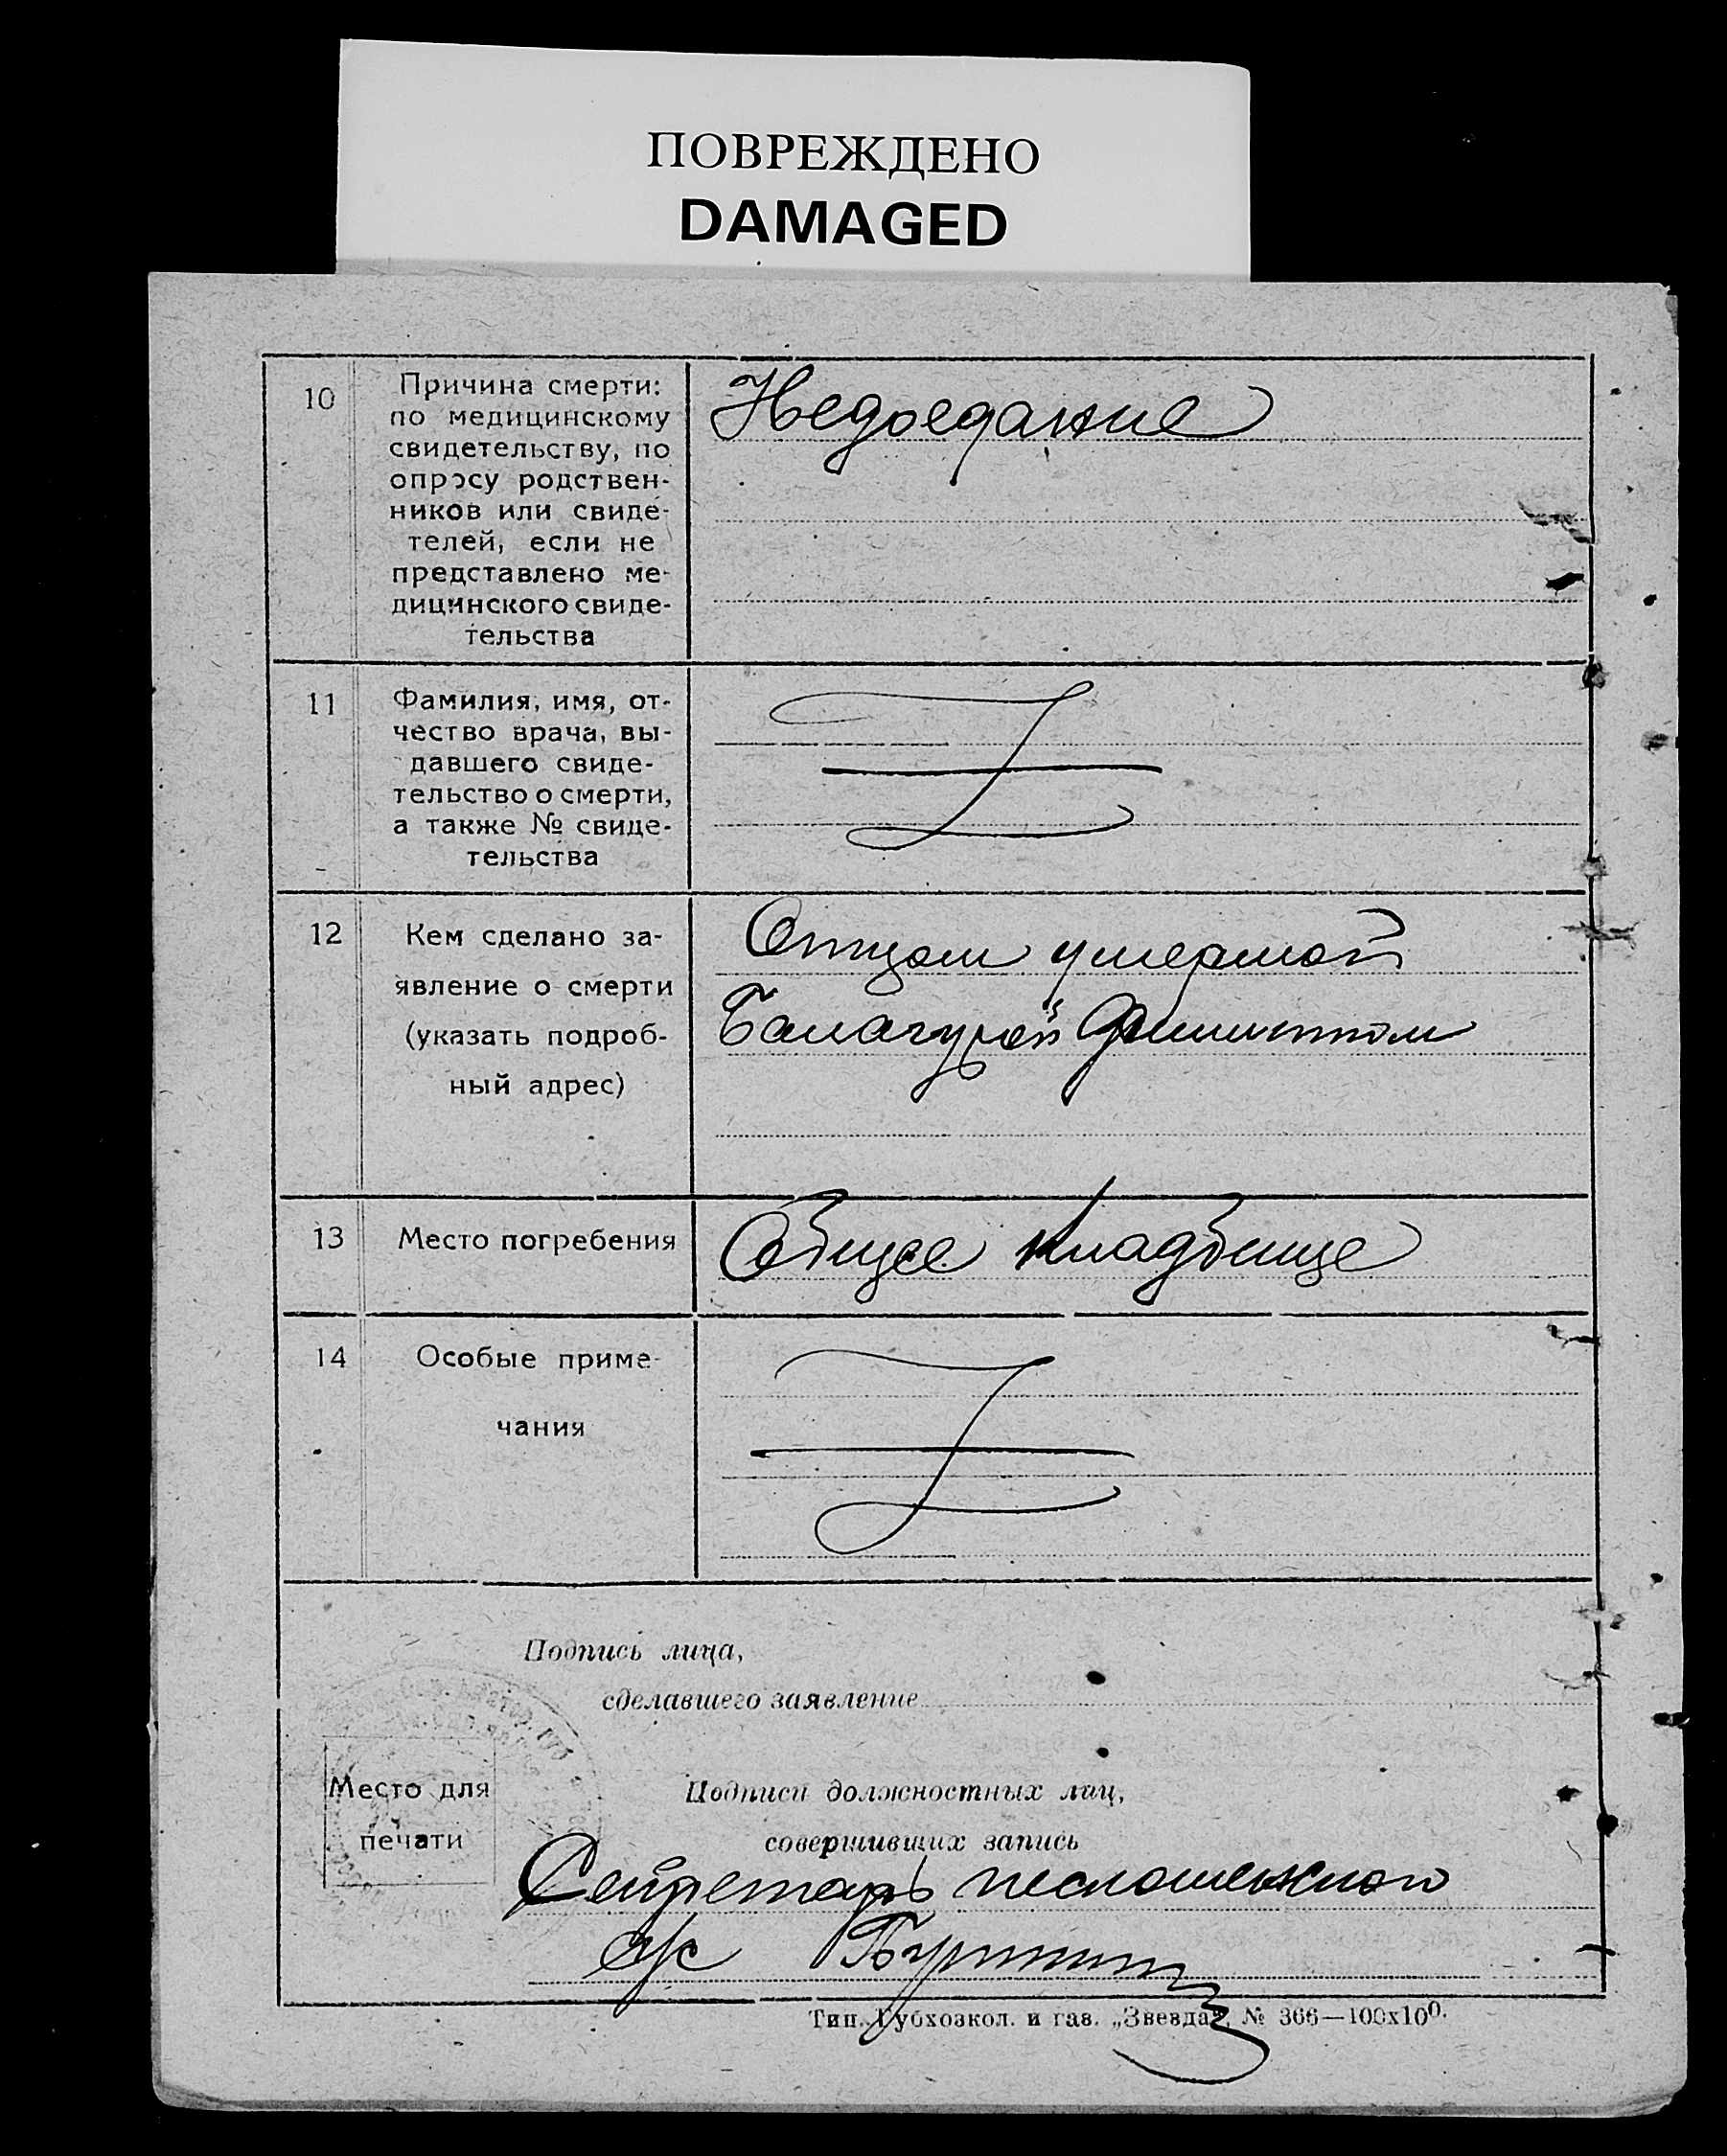 ПОВРЕЖДЕНО
DAMAGED
10
Причина смерти:
по медицинскому
свидетельству, по
опросу родствен-
ников или свиде-
телей, если не
представлено ме-
дицинского свиде-
тельства
Недоедание
11
Фамилия, имя, от-
чество врача, вы-
давшего свиде-
тельство о смерти,
а также № свиде-
тельства
12
Кем сделано за-
явление о смерти
(указать подроб-
ный адрес)
Отцом умершой
Балагурой
13
Место погребения
Общее кладбище
14
Особые приме-
чания
Подпись лица,
сделавшего заявление
Место для
печати
Подписи должностных лиц,
совершивших запись
Секретарь
с/с
Тип. Губхозкол. и газ. „Звезда", № 366—100х100.